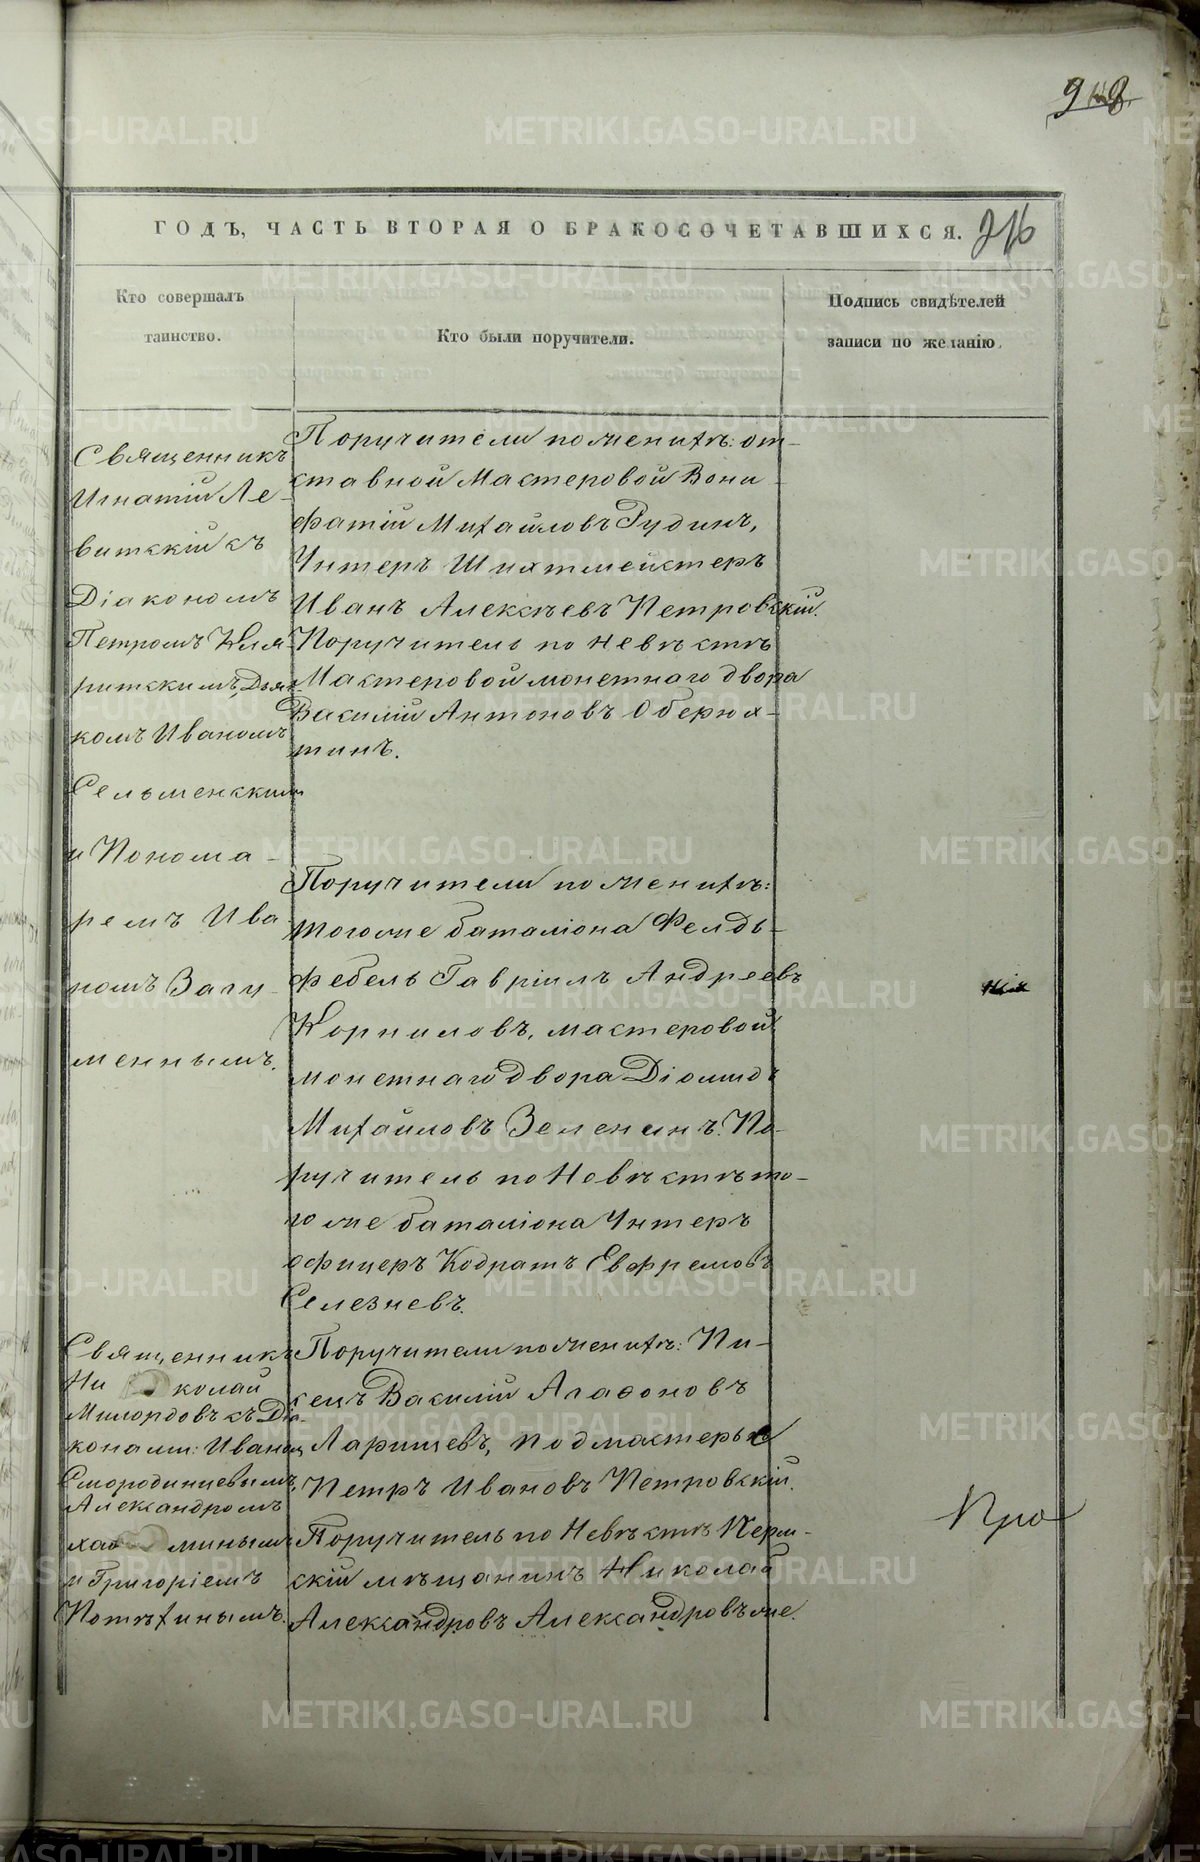 ГОДЪ, ЧАСТЬ ВТОРАЯ О БРАКОСОЧЕТАВШИХСЯ. 216
Кто совершалъ
таинство.
Кто были поручители.
Подпись свидѣтелей
записи по желанію.
Священникъ
Игнатій Ле-
витскій съ
Діакономъ
Петромъ Кля-
ритскимъ, Дьяч-
комъ Иваномъ
Сельменскимъ
и Понома-
ремъ Ива-
номъ Загу-
меннымъ.
Поручители по женихѣ: от-
ставной Мастеровой Вони-
фатій Михайловъ Рудинъ,
Унтеръ Шихтмейстеръ
Иванъ Алексѣевъ Петровскій.
Поручитель по Невѣстѣ
Мастеровой монетнаго двора
Василій Антоновъ Оберюх-
тинъ.
Поручители по женихѣ:
тогоже баталіона Фельд-
фебель Гавріилъ Андреевъ
Корниловъ, мастеровой
монетнаго двора Діомидъ
Михайловъ Зеленинъ. По-
ручитель по Невѣстѣ то-
гоже баталіона Унтеръ
офицеръ Кодратъ Евфремовъ
Селезневъ.
Священникъ
Николай
Милордовъ съ Діа-
конами: Иваномъ
Смородинцевымъ,
Александромъ
миннымъ
и Григоріемъ
Потѣхинымъ.
Поручители по женихѣ: Пи-
сецъ Василій Агафоновъ
Ларинцевъ, подмастерье
Петръ Ивановъ Петровскій.
Поручитель по Невѣстѣ Перм-
скій мѣщанинъ Николай
Александровъ Александровъ же.
Про
METRIKI.GASO-URAL.RU